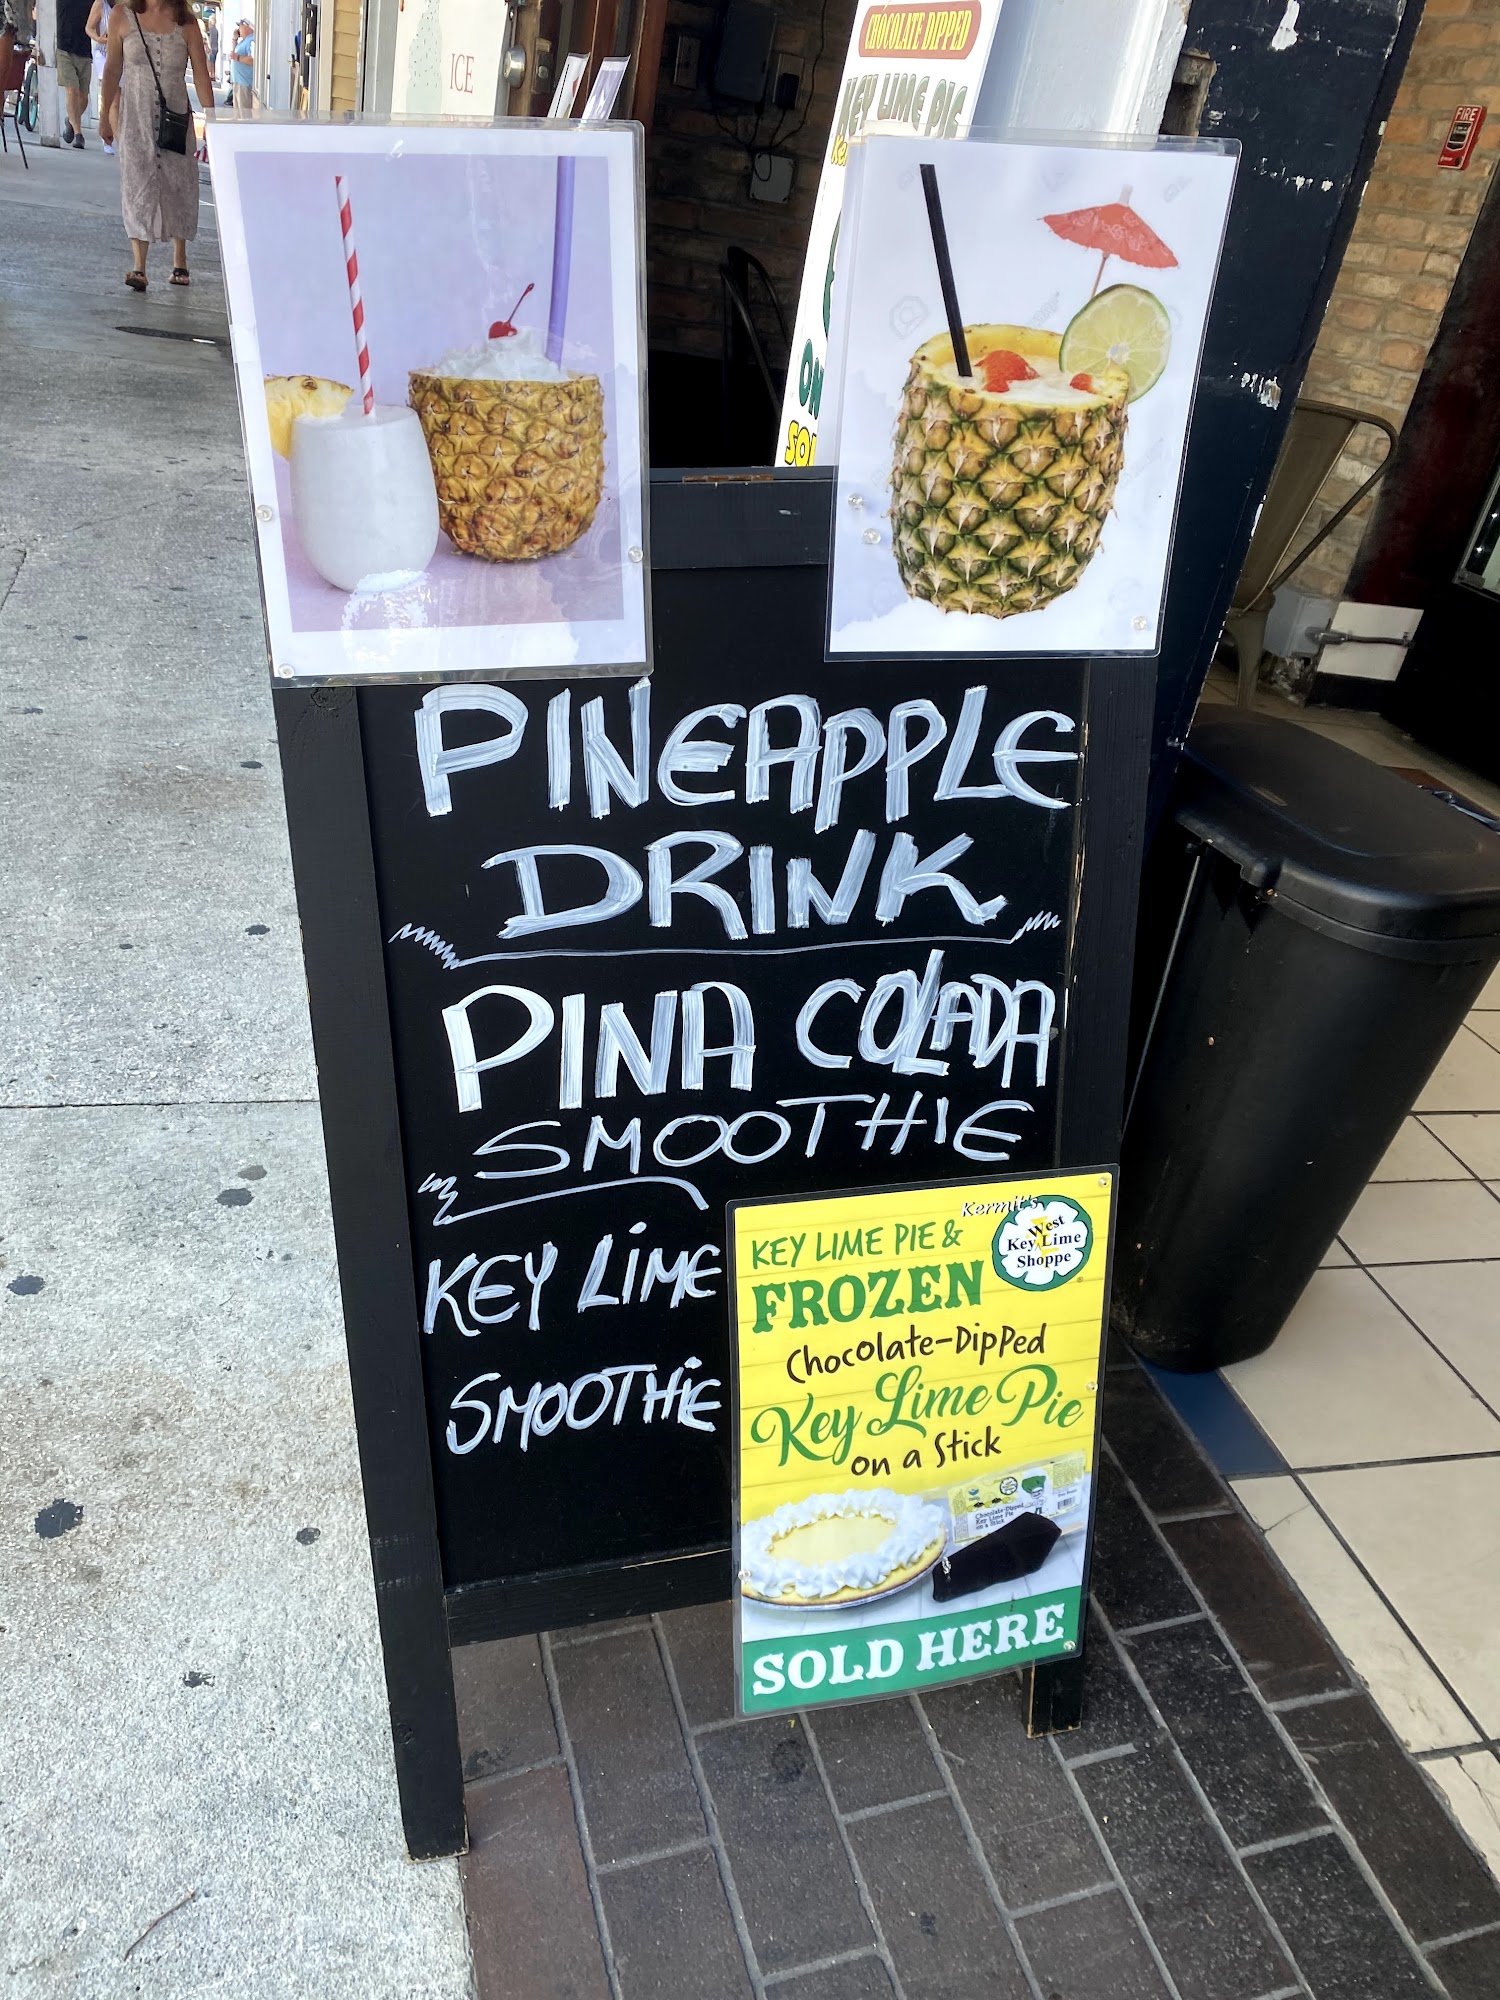 ICE
CHOCOLATE DIPPED
KEY LIME PIE
ON
FIRE
PINEAPPLE
DRINK
PINA COLADA
SMOOTHIE
KEY LIME
SMOOTHIE
Kermit's
West
Key Lime
Shoppe
KEY LIME PIE &
FROZEN
Chocolate-Dipped
Key Lime Pie
on a Stick
Chocolate-Dipped
Key Lime Pie
on a Stick
SOLD HERE